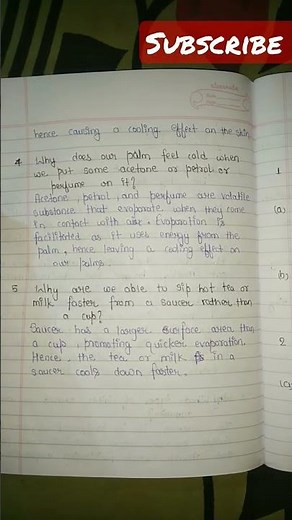 SUBSCRIBE
hence causing a cooling effect on the skin.
4 Why does our palm feel cold when
we put some acetone or petrol or
perfume on it?
Acetone, petrol, and perfume are volatile
substance that evaporate when they come
in contact with air. Evaporation is
facilitated as it uses energy from the
palm, hence leaving a cooling effect on
our palms.
5 Why are we able to sip hot tea or
milk faster from a saucer rather than
a cup?
Saucer has a larger surface area than
a cup, promoting quicker evaporation.
Hence, the tea or milk is in a
saucer cools down faster.
1
(a)
(b)
2
(a